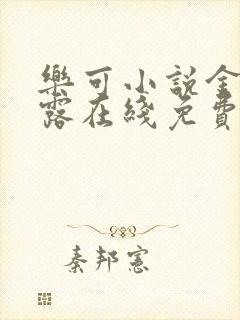 樂可小說金
露在綫免費
秦邦憲